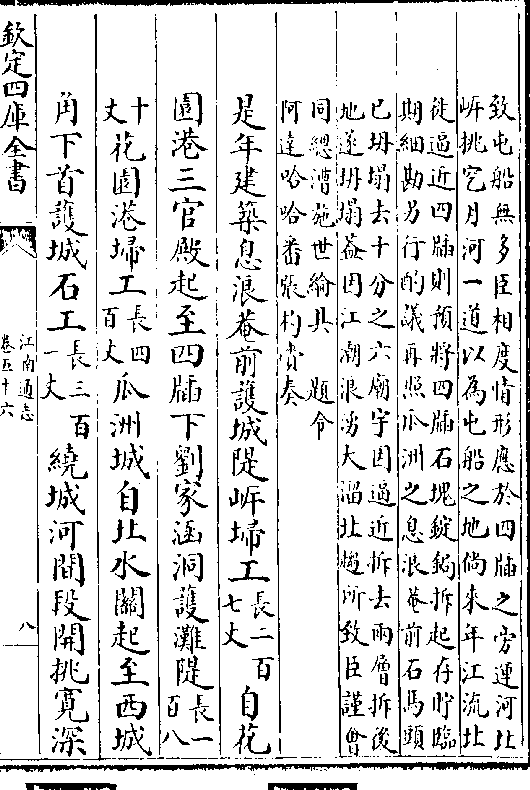 致屯船無多臣相度情形應於四牐之旁運河北
㟁挑𡩋月河一道以為屯船之地倘來年江流北
徙逼近四牐則預將四牐石塊錠鋦拆起存貯臨
期細勘另行酌議再照瓜洲之息浪菴前石馬頭
已坍塌去十分之六廟宇因逼近拆去兩層拆後
地遂坍塌葢因江潮浪湧大溜北趨所致臣謹會
同總漕施世綸具　題令
阿達哈哈番張杓賫奏
是年建築息浪菴前護城隄㟁埽工長二百
七丈自花
園港三官殿起至四牐下劉家涵洞護灘隄長一
百八
十
丈花園港埽工長四
百丈瓜洲城自北水關起至西城
角下首護城石工長三百
一丈繞城河間段開挑寛深
欽定四庫全書
江南通志
卷五十六
八